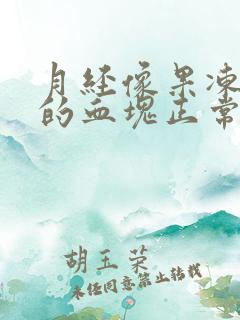 月经像果冻
的血块正常
胡玉荣
未经同意禁止转载